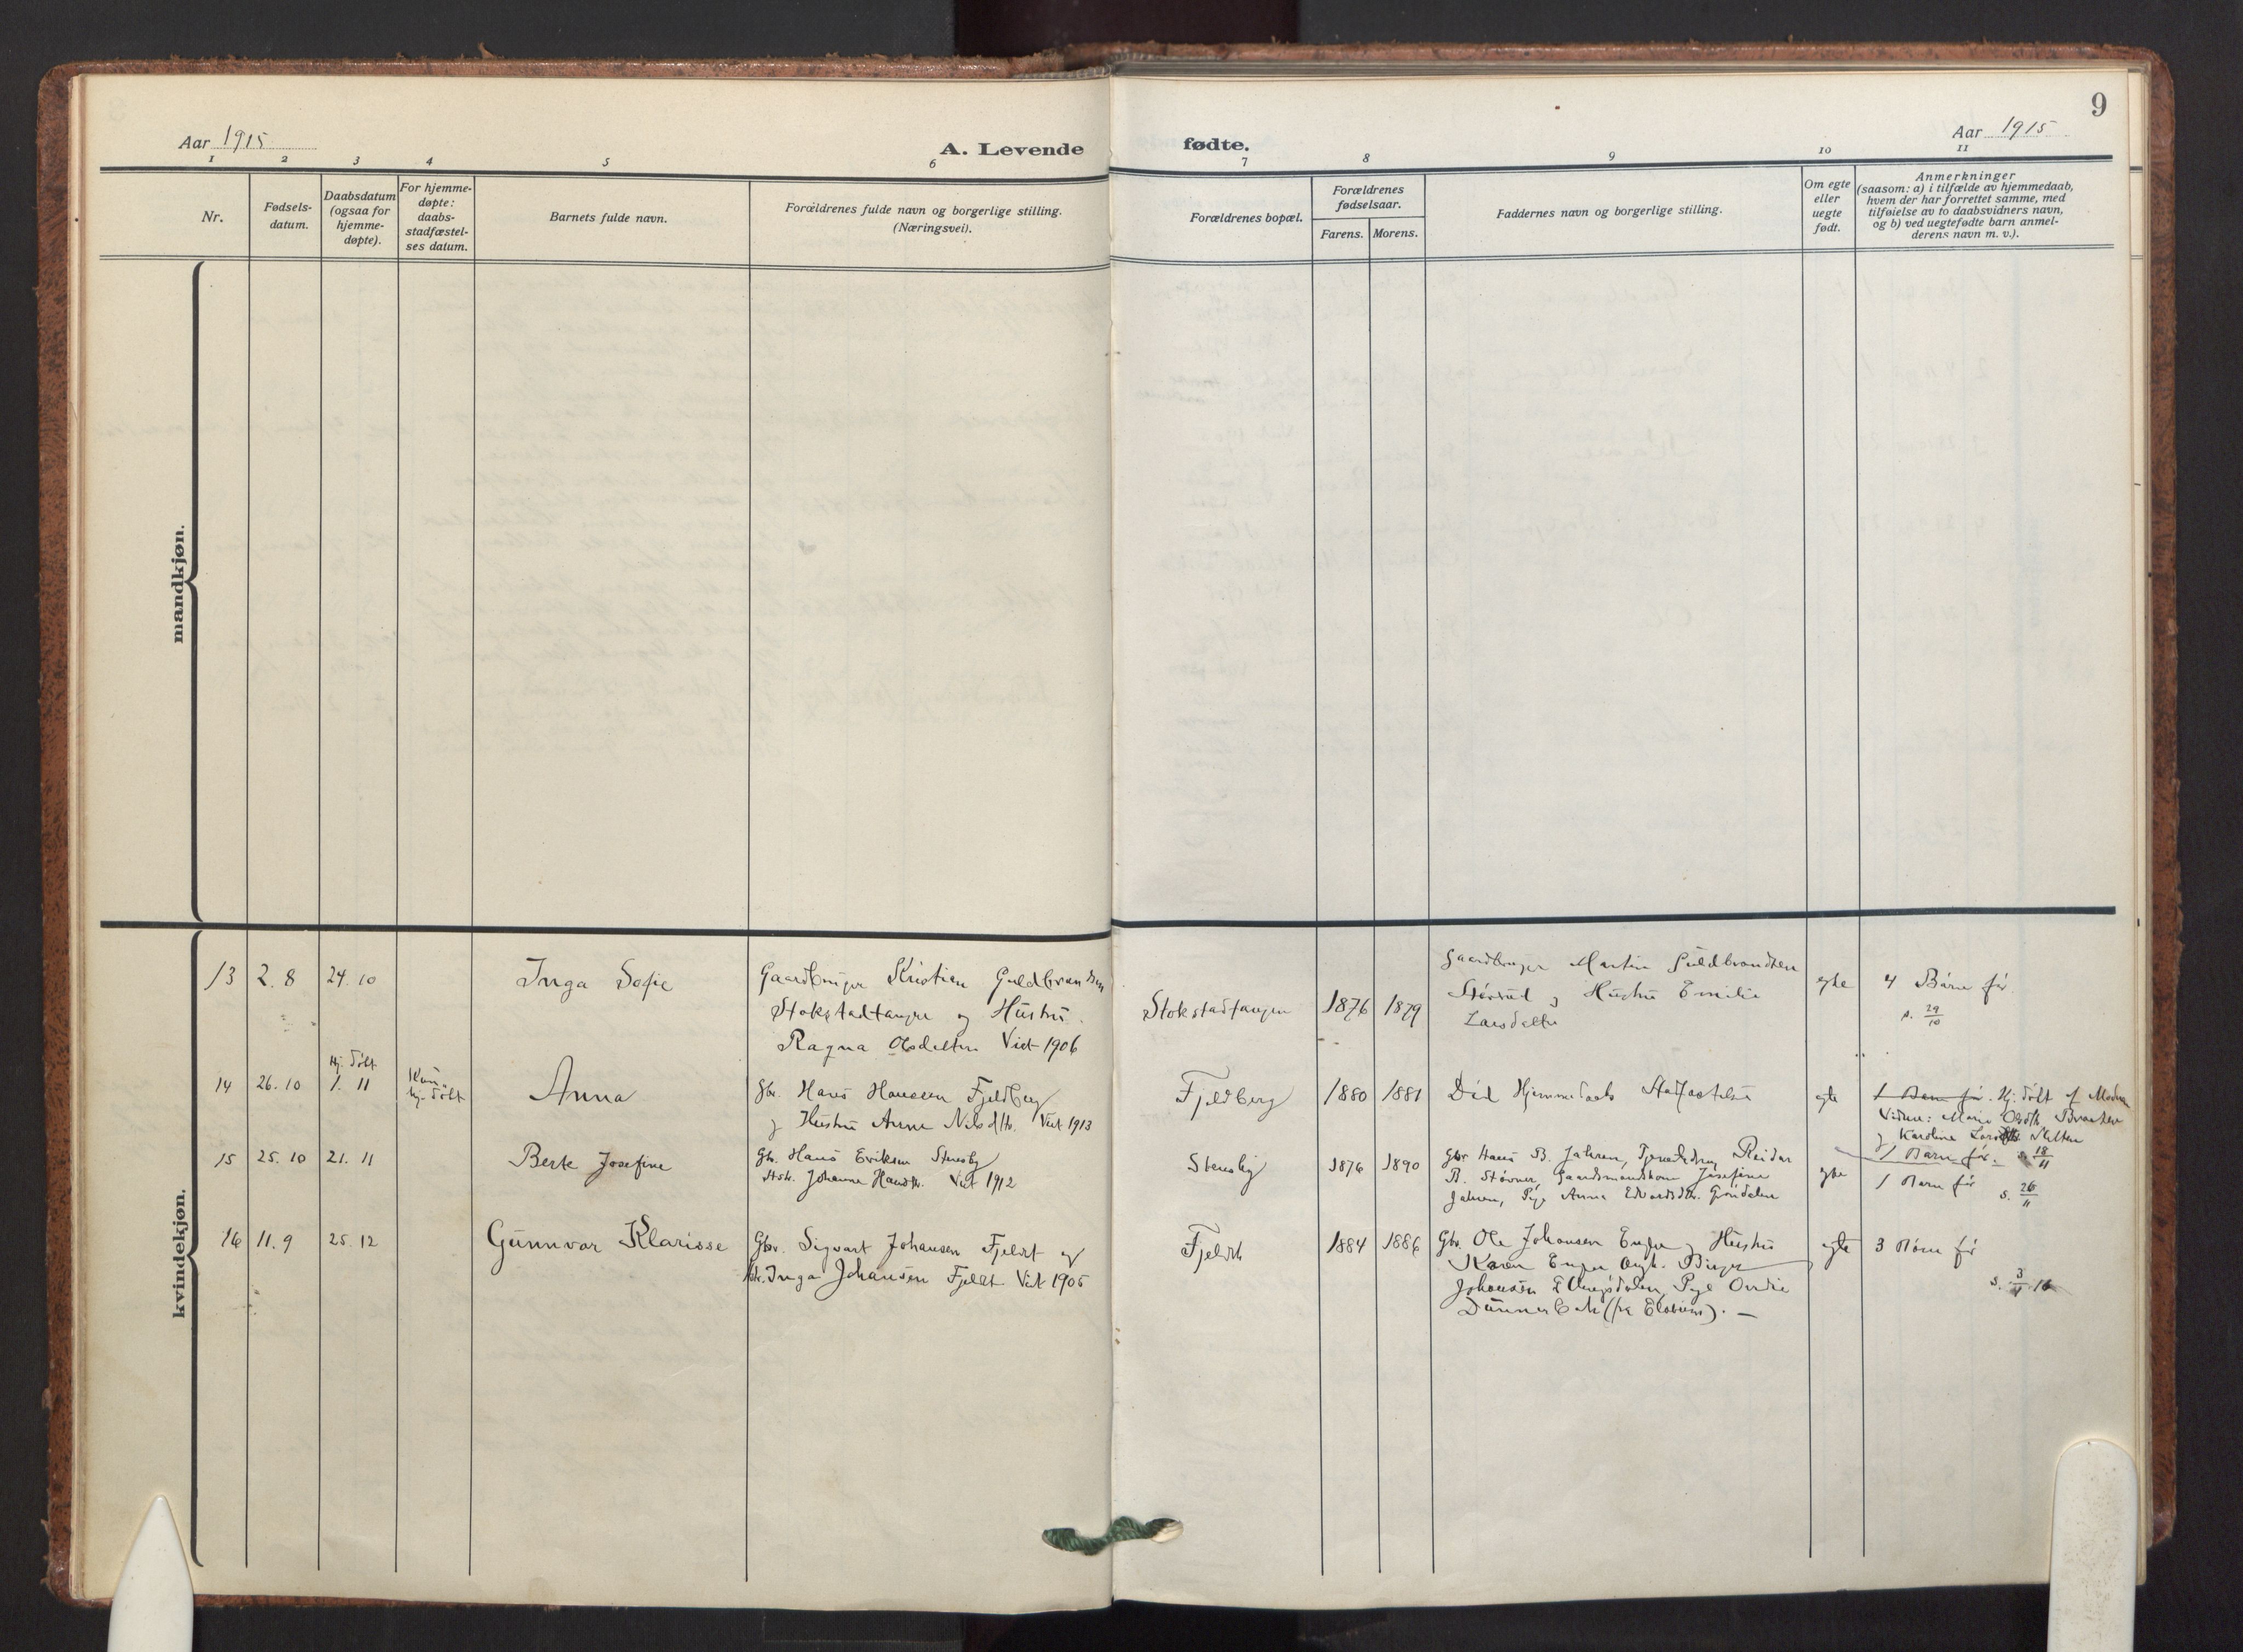 9
Aar 1915
A. Levende fødte.
Aar 1915
1 2 3 4 5 6 7 8 9 10 11
Nr.
Fødsels-
datum.
Daabsdatum
(ogsaa for
hjemme-
døpte).
For hjemme-
døpte:
daabs-
stadfæstel-
ses datum.
Barnets fulde navn.
Forældrenes fulde navn og borgerlige stilling.
(Næringsvei).
Forældrenes bopæl.
Forældrenes
fødselsaar.
Farens. Morens.
Faddernes navn og borgerlige stilling.
Om egte
eller
uegte
født.
Anmerkninger
(saasom: a) i tilfælde av hjemmedaab,
hvem der har forrettet samme, med
tilføielse av to daabsvidners navn,
og b) ved uegtefødte barn anmel-
derens navn m. v.).
mandkjøn.
kvindekjøn.
13 2.8 24.10
Inga Sofie
Gaardbruger Kristian Guldbrandsen
Stokstadtangen og Hustru
Ragna Olsdatter Viet 1906
Stokstadtangen
1876 1879
Gaardbruger Martin Guldbrandsen
Størrud og Hustru Emilie
Larsdatter
egte
4 Børn før
s. 29/10
14 26.10
Hj. døbt
1. 11
Kun
hj. døbt
Anna
Gbr. Hans Hansen Fjeldberg
og Hustru Anne Nilsdtr. Viet 1913
Fjeldberg
1880 1881
Død Hjemmedaab Stadfæstelse
egte
1 Barn før. Hj. døbt af Moder
Vidner: Marie Olsdtr. Braaten
og Karoline Larsdtr.
1 Barn før. s. 18/11
15 25.10 21.11
Berte Josefine
Gbr. Hans Eriksen Stensby
Hstr. Johanne Hansdtr. Viet 1912
Stensby
1876 1890
Gbr Hans B. Jahren, Reidar
B. Støvner, Gaardmandskone Josefine
Jahren, Pige Anna Edvardsdtr. Grøndalen
egte
1 Barn før
s. 26/11
16 11.9 25.12
Gunnvor Klarisse
Gbr. Sigvart Johansen Fjeldt og
Hstr. Inga Johansen Fjeldt Viet 1905
Fjeldt
1884 1886
Gbr. Ole Johansen Enger og Hustru
Karen Enger Birger
Johansen Pige
(fra
egte
3 Børn før
s. 3/1 16